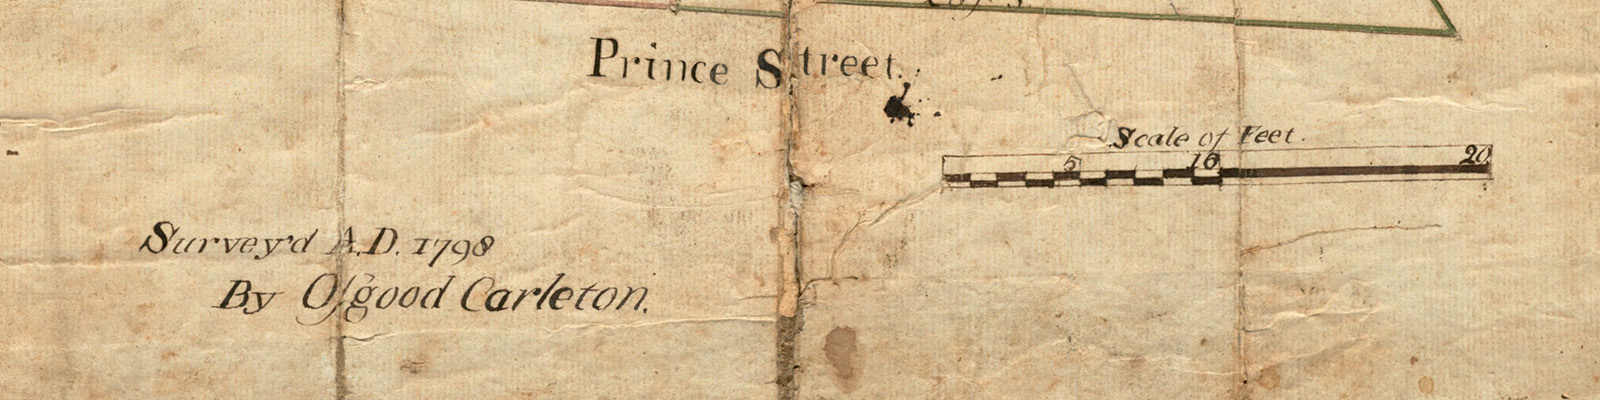 Prince Street.
Scale of Feet.
5 10 20
Survey'd A.D. 1798
By Oſgood Carleton.